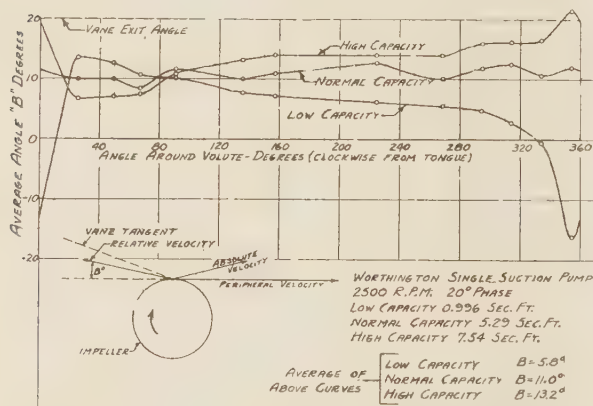 VANE EXIT ANGLE
20
HIGH CAPACITY
NORMAL CAPACITY
10
LOW CAPACITY
AVERAGE ANGLE "B" DEGREES
0
40 80 120 160 200 240 280 320 360
ANGLE AROUND VOLUTE-DEGREES (CLOCKWISE FROM TONGUE)
-10
VANE TANGENT
RELATIVE VELOCITY
ABSOLUTE VELOCITY
-20
B°
PERIPHERAL VELOCITY
IMPELLER
WORTHINGTON SINGLE SUCTION PUMP
2500 R.P.M. 20° PHASE
LOW CAPACITY 0.996 SEC. FT.
NORMAL CAPACITY 5.29 SEC. FT.
HIGH CAPACITY 7.54 SEC. FT.
AVERAGE OF ABOVE CURVES
LOW CAPACITY B=5.8°
NORMAL CAPACITY B=11.0°
HIGH CAPACITY B=13.2°